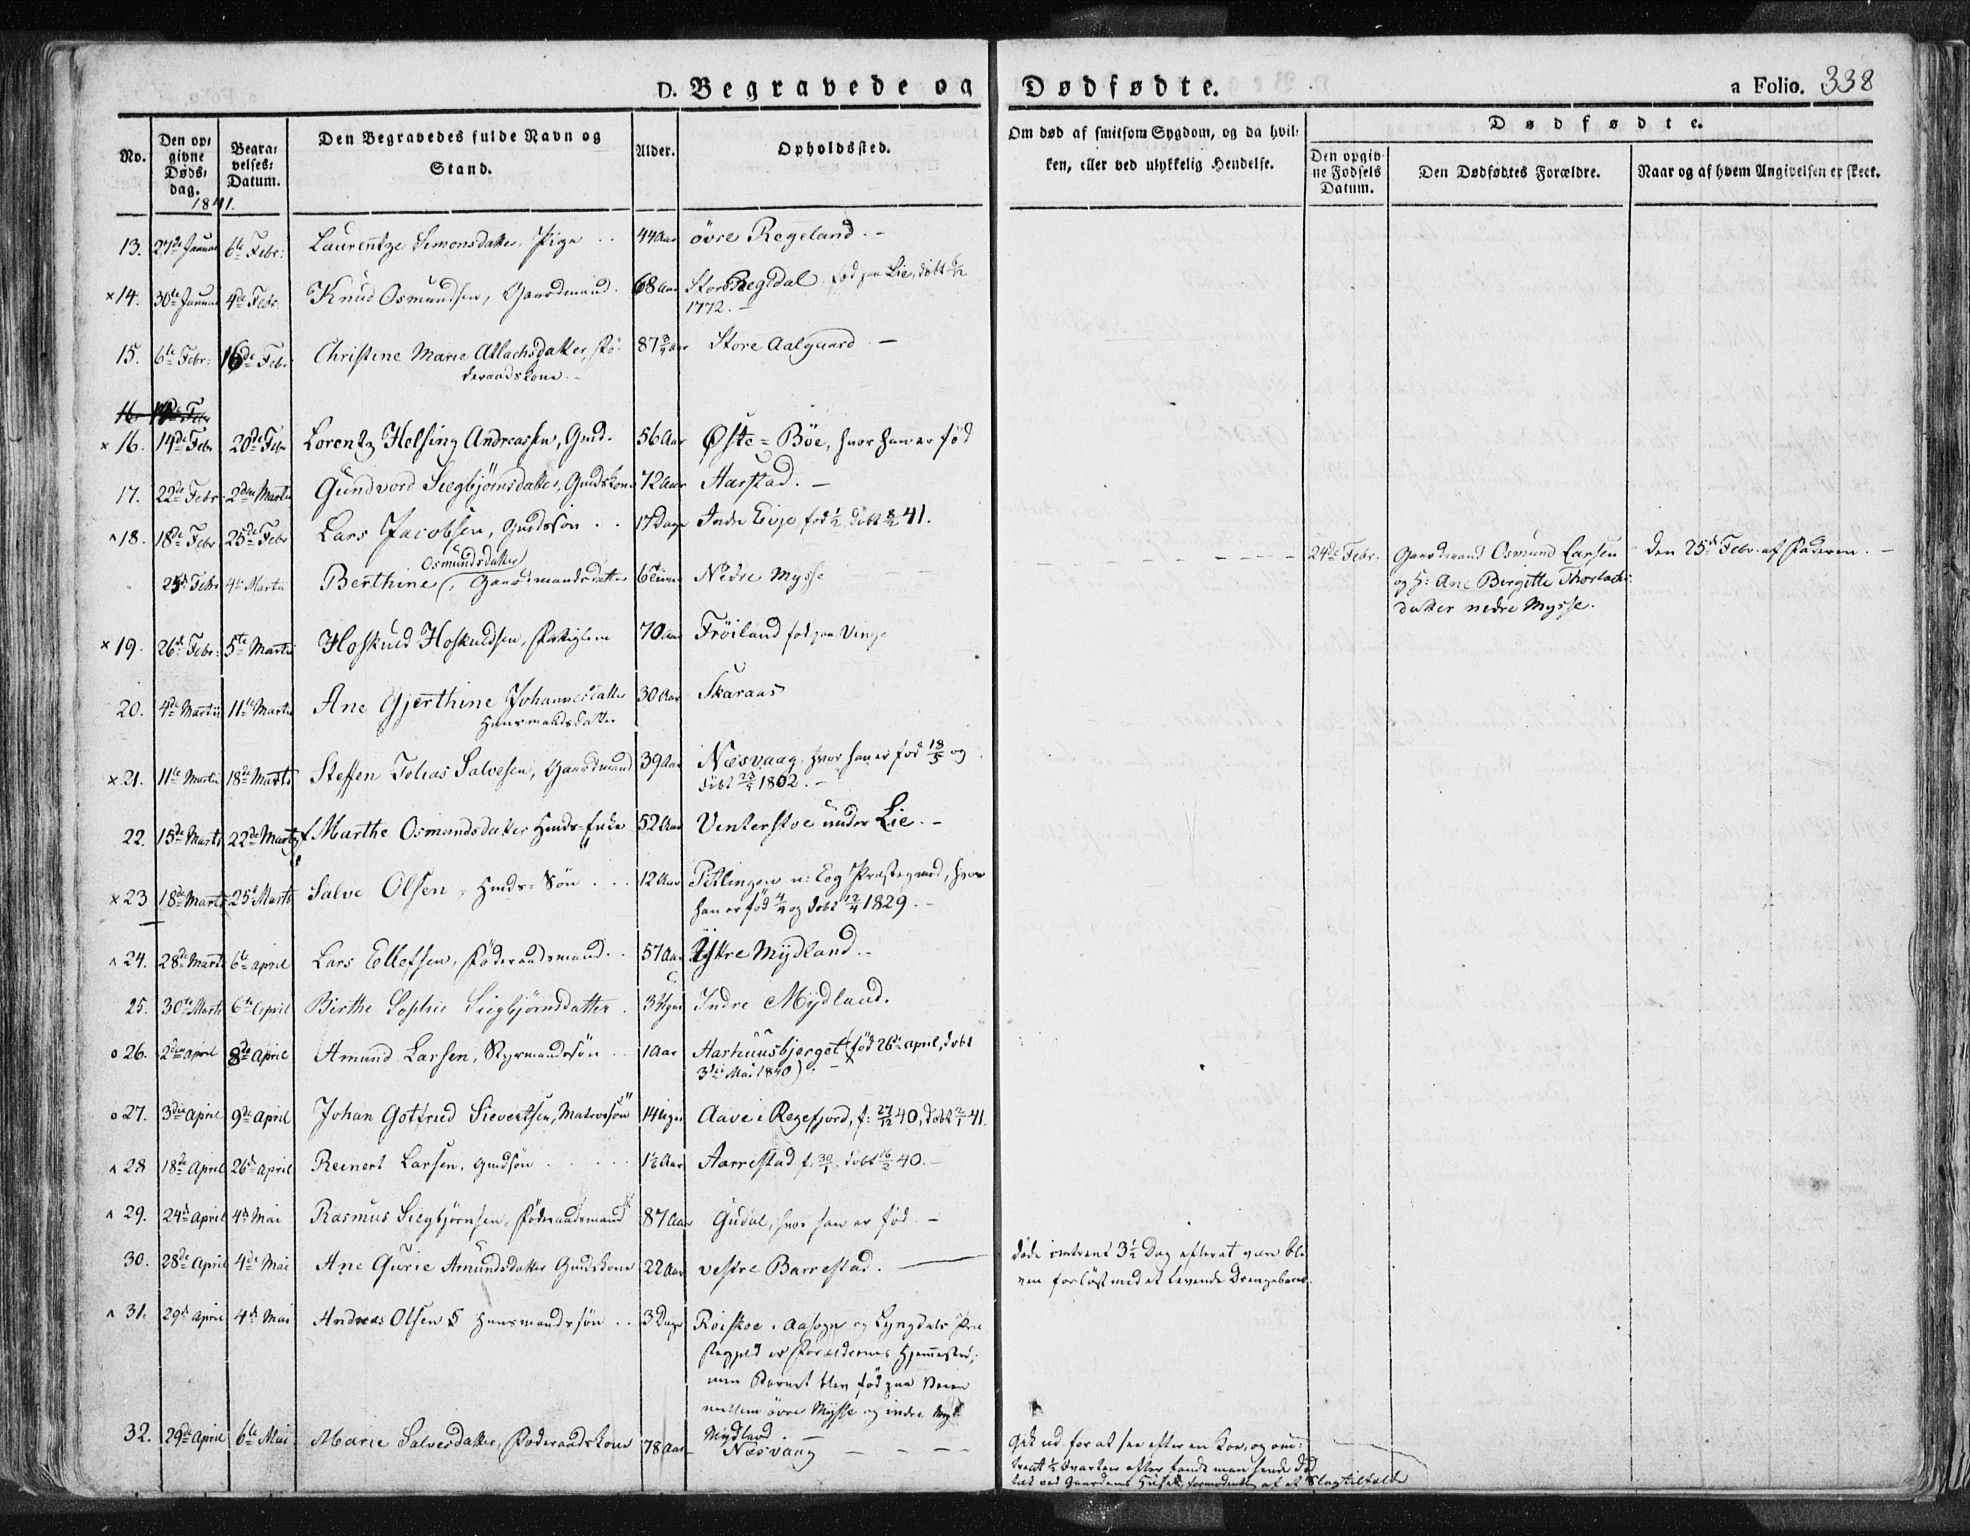 D. Begravede og Dødfødte. a Folio. 338
No. Den opgivne Dødsdag. Begravelses-Datum. Den Begravedes fulde Navn og Stand. Alder. Opholdssted. Om død af smitsom Sygdom, og da hvilken, eller ved ulykkelig Hendelse. Dødfødte.
Den opgivne Fødsels Datum. Den Dødfødtes Forældre. Naar og af hvem Angivelsen er skeet.
1841.
13. 27de Januar 6te Febr: Laurentze Simonsdatter, Pige 44 Aar øvre Regeland. -
× 14. 30te Januar 4de Febr. Knud Osmundsen, Gaardmand. 68 Aar Store Regedal, fød paa Lie, døbt 6/12
1772. -
15. 6te Febr: 16de Febr Christine Marie Atlachsdatter, Fø-
deraadskone - 87 3/4 aar Store Aalgaard -
16 Febr
× 16. 14de Febr 20de Febr Lorentz Helsing Andreassen, Gmd. 56 Aar Øste = Bøe, hvor han er fød
17. 22de Febr 2den Martii Gundvord Siegbjørnsdatter, Gmdskone 72 Aar Harstad. -
18. 18de Febr 25de Febr Lars Jacobsen, Gmdssøn 17 Dage Indre Eije, fød 1/2, døbt 8/2 41.
24de Febr. Gaardmand Osmund Larsen Den 25de Febr. af Faderen. -
og H: Ane Birgitte Thorlachs-
datter nedre Mysse.
25de Febr 4de Martii Berthine Osmundsdatter, Gaardmandsdatter 6 Timer Nedre Mysse
× 19. 26de Febr: 5te Martii Hoskuld Hoskuldsen, Fattiglem 70 Aar Frøiland fød paa Vinge
20. 4de Martii 11te Martii Ane Gjerthine Johannesdatter
Huusmandsdatter 30 Aar Skaraas
× 21. 11te Martii 18de Martii Steffen Tobias Salvesen, Gaardmand 39 Aar Næsvaag, hvor han er fød 18/5 og
døbt 23/5 1802. -
22. 15de Martii 22de Martii Marthe Osmundsdatter Hmds-Enke 52 Aar Venterstoe under Lie. -
× 23 18de Martii 25de Martii Salve Olsen, Hmds-Søn 12 Aar Pitlingen u: Eeg Præstegaard, hvor
han er fød 4/4 og døbt 12/4 1829. -
24. 28de Martii 6te april Lars Ellefsen, Føderaadsmand. 57 Aar Ystre Mydland. -
25. 30te Martii 6te April Birthe Sophie Siegbjørnsdatter. 3 Uger Indre Mydland.
o 26. 2den april 8de April Amund Larsen, Ryermandssøn 1 Aar Aarhuusbjerget (fød 26de april, døbt
3die Mai 1840). -
o 27. 3die April 9de April Johan Gotfried Sievertsen, Matrossøn 14 Uger Aave i Regefjord, f: 27/12 40, døbt 2/1 41.
28 18de April 26de April Reinert Larsen, Gmdsøn 1 1/4 Aar Aarrestad f. 30/1, døbt 16/2 40. -
29. 24de April 4de Mai Rasmus Siegbjørnsen, Føderaadsmand 87 Aar Gudal, hvor han er fød. -
30. 28de April 4de Mai Ane Gurie Amundsdatter Gmdskone 22 Aar vestre Barrestad. døde omtrent 3 1/2 Dag efterat være ble-
ven forløst med et levende Drengebarn.
31. 29de april 4de Mai Andreas Olsen § Huusmandssøn 3 Dage Røiskoe i Aasogn og Lyngdals Præ-
stegjeld er Forældrenes Hjemmested;
men Barnet blev fød paa Veien
mellem øvre Mysse og indre
Mydland. -
32. 29de April 6te Mai Marie Salvesdatter, Føderaadskone 78 Aar Næsvaag Gik ud for at see efter en Koe, og om-
trent 1/2 Qvarteer efter fandt man hende død
tæt ved Gaardens Huse, formodentlig af et Slagtilfælde